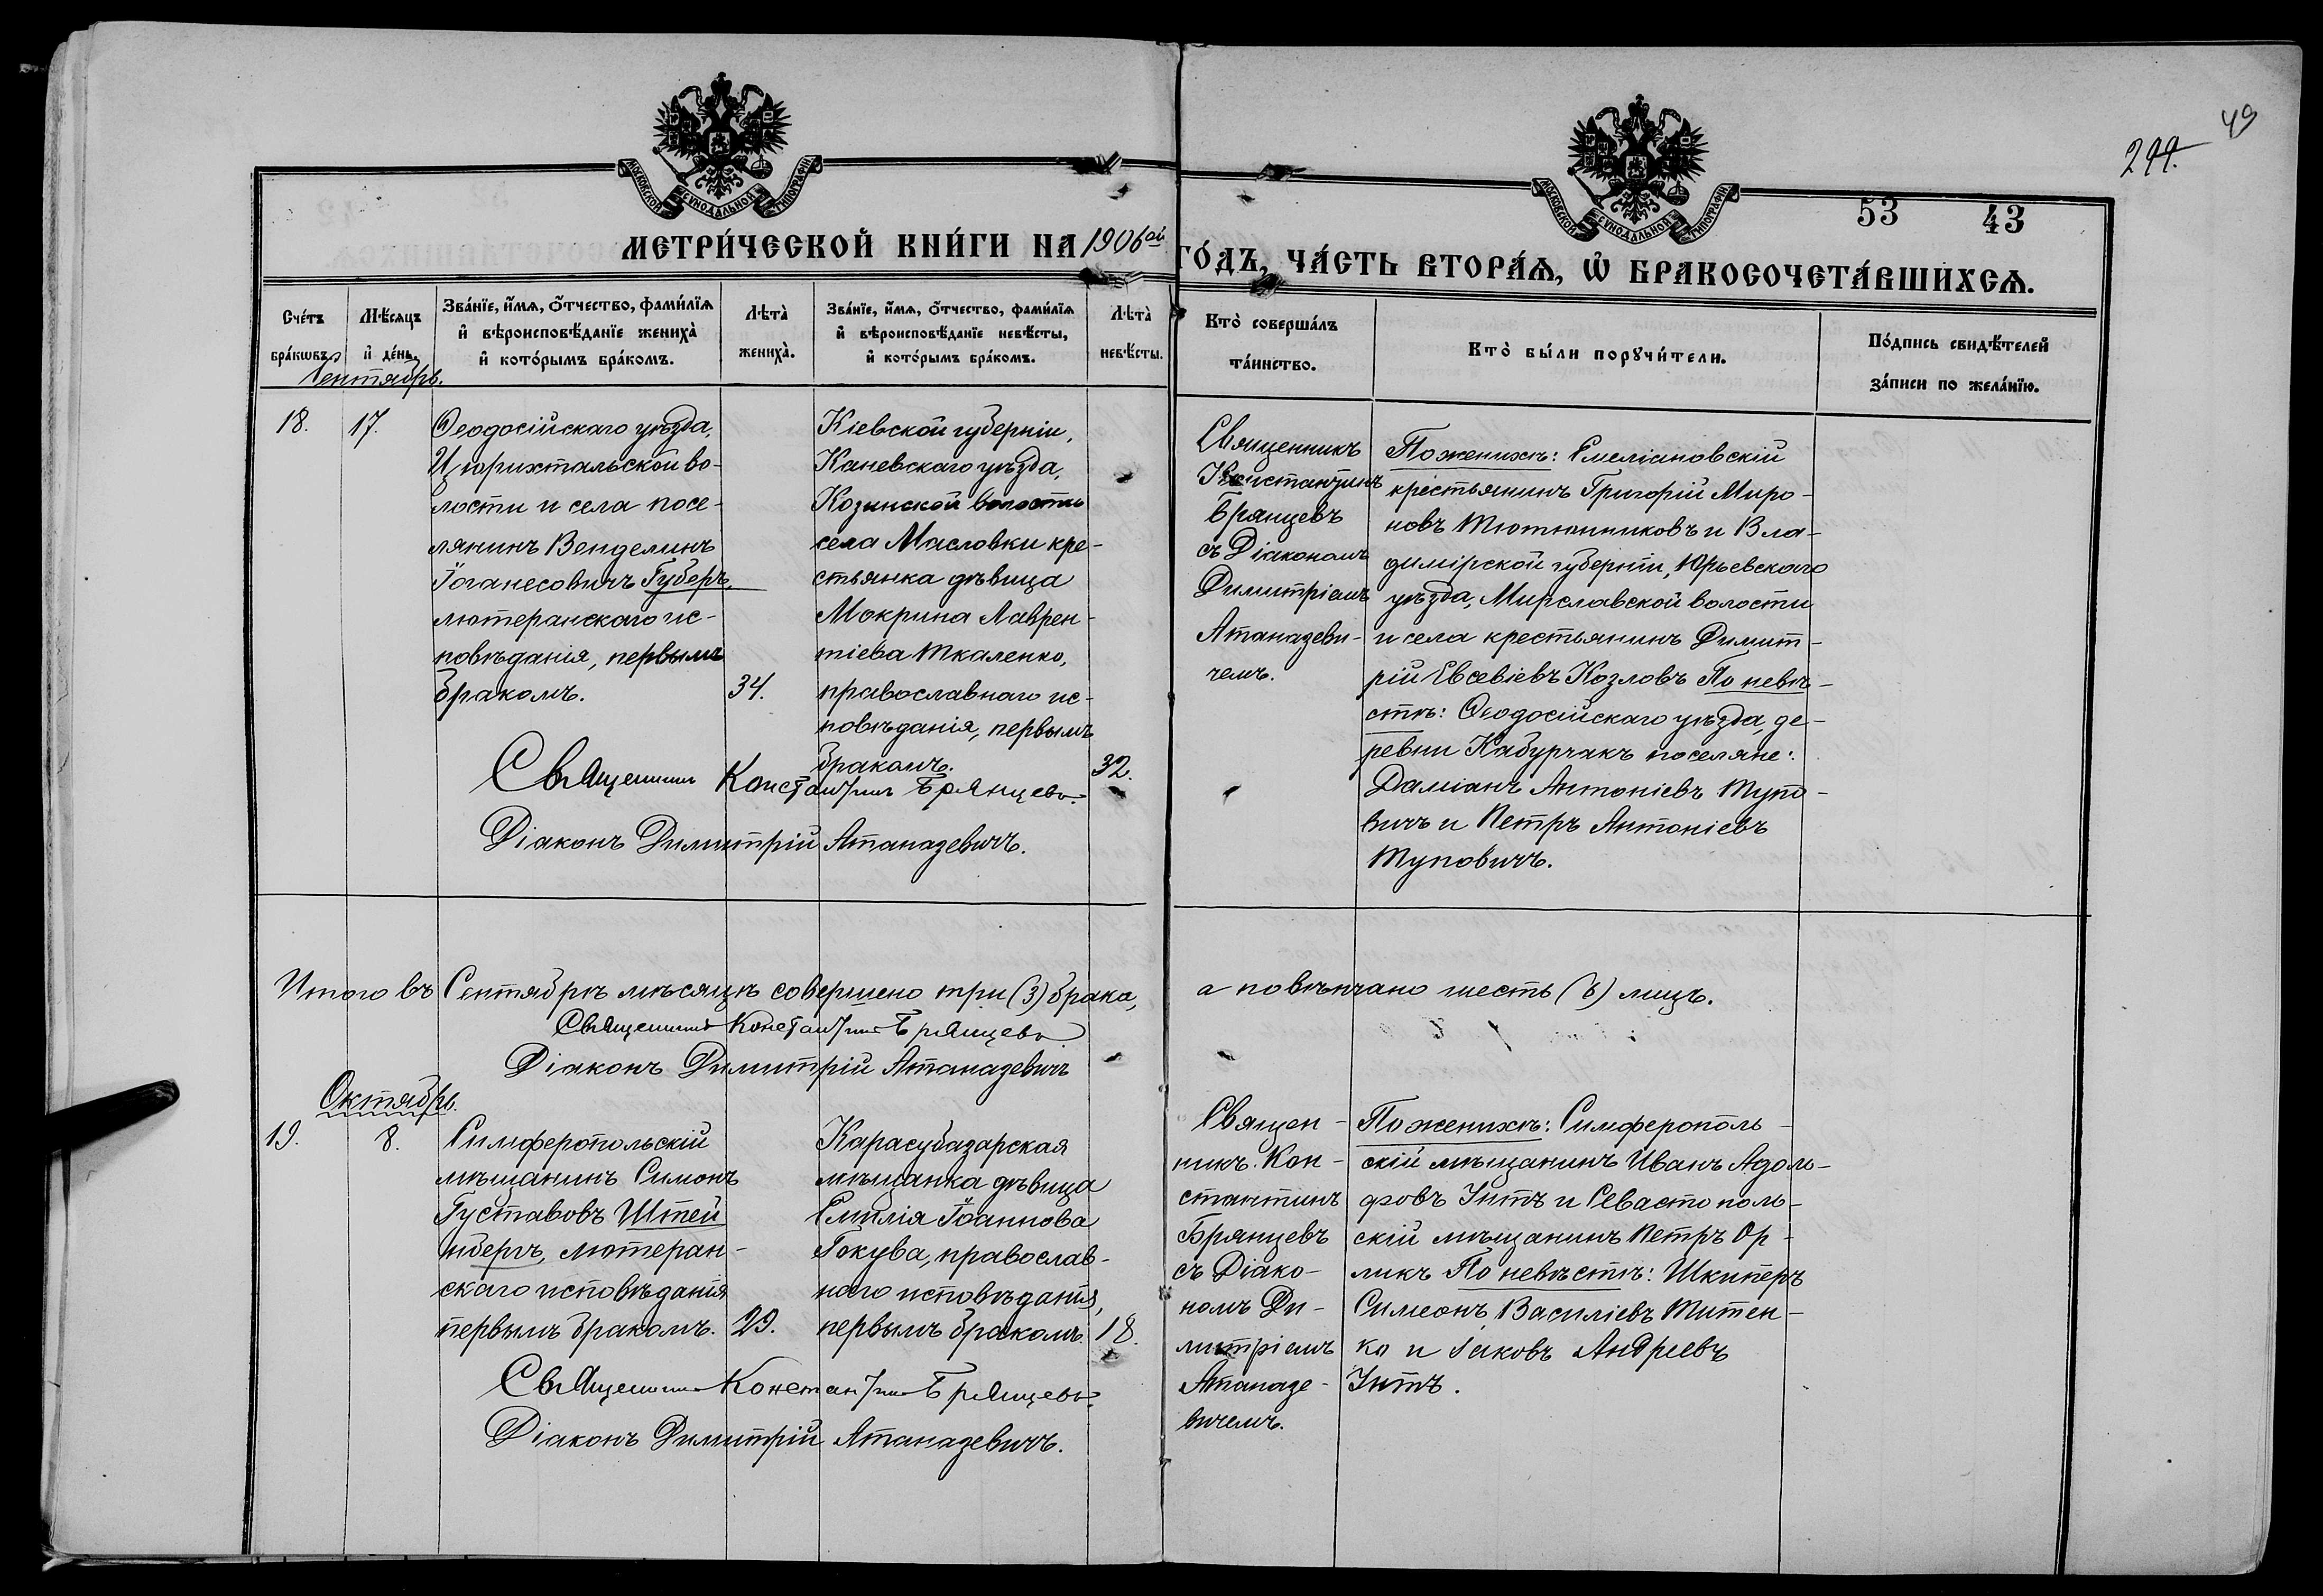 49
299.
МОСКОВСКОЙ СѴНОДАЛЬНОЙ ТИПОГРАФІИ
МОСКОВСКОЙ СѴНОДАЛЬНОЙ ТИПОГРАФІИ
53 43
МЕТРИ́ЧЕСКОЙ КНИ́ГИ НА 1906ой ГО́ДЪ, ЧА́СТЬ ВТОРА́Ѧ, Ѽ БРАКОСОЧЕТА́ВШИХСѦ.
Сче́тъ бра́кѡвъ.
Мѣ́сяцъ и҆ де́нь.
Зва́нїе, и҆́мѧ, ѻ҆́тчество, фами́лїѧ
и҆ вѣроисповѣ́данїе жениха̀
и҆ кото́рымъ бра́комъ.
Лѣта̀ жениха̀.
Зва́нїе, и҆́мѧ, ѻ҆́тчество, фами́лїѧ
и҆ вѣроисповѣ́данїе невѣ́сты,
и҆ кото́рымъ бра́комъ.
Лѣта̀ невѣ́сты.
Кто̀ соверша́лъ
та́инство.
Кто̀ бы́ли порꙋчи́тели.
По́дпись свидѣ́телей
за́писи по жела́нїю.
Сентябрь.
18.
17.
Ѳеодосійскаго уѣзда,
Цюрихтальской во-
лости и села посе-
лянинъ Венделинъ
Іоганесовичъ Губеръ,
лютеранскаго ис-
повѣданія, первымъ
бракомъ.
34.
Кіевской губерніи,
Каневскаго уѣзда,
Козинской волости
села Масловки кре-
стьянка дѣвица
Мокрина Лаврен-
тіева Ткаленко,
православнаго ис-
повѣданія, первымъ
бракомъ.
32.
Священникъ
Константинъ
Брянцевъ
съ Діакономъ
Димитріемъ
Атаназеви-
чемъ.
По женихѣ: Емеліановскій
крестьянинъ Григорій Миро-
новъ Тютюнниковъ и Вла-
димірской губерніи, Юрьевскаго
уѣзда, Мирславской волости
и села крестьянинъ Димит-
рій Евсевіевъ Козловъ По невѣ-
стѣ: Ѳеодосійскаго уѣзда, де-
ревни Кабурчакъ поселяне:
Даміанъ Антоніевъ Тупо-
вичъ и Петръ Антоніевъ
Туповичъ.
Священникъ Константинъ Брянцевъ.
Діаконъ Димитрій Атаназевичъ.
Итого въ Сентябрѣ мѣсяцѣ совершено три (3) брака, а повѣнчано шесть (6) лицъ.
Священникъ Константинъ Брянцевъ
Діаконъ Димитрій Атаназевичъ
Октябрь.
19.
8.
Симферопольскій
мѣщанинъ Симонъ
Густавовъ Штей
нбергъ, лютеран-
скаго исповѣданія
первымъ бракомъ.
29.
Карасубазарская
мѣщанка дѣвица
Емилія Іоаннова
Гокува, православ-
наго исповѣданія,
первымъ бракомъ.
18.
Священ-
никъ Кон-
стантинъ
Брянцевъ
съ Діако-
номъ Ди-
митріемъ
Атаназе-
вичемъ.
По женихѣ: Симферополь-
скій мѣщанинъ Иванъ Адоль-
фовъ Унтъ и Севастополь-
скій мѣщанинъ Петръ Ор-
ликъ По невѣстѣ: Шкиперъ
Симеонъ Василіевъ Титен-
ко и Іаковъ Андреевъ
Унтъ.
Священникъ Константинъ Брянцевъ.
Діаконъ Димитрій Атаназевичъ.